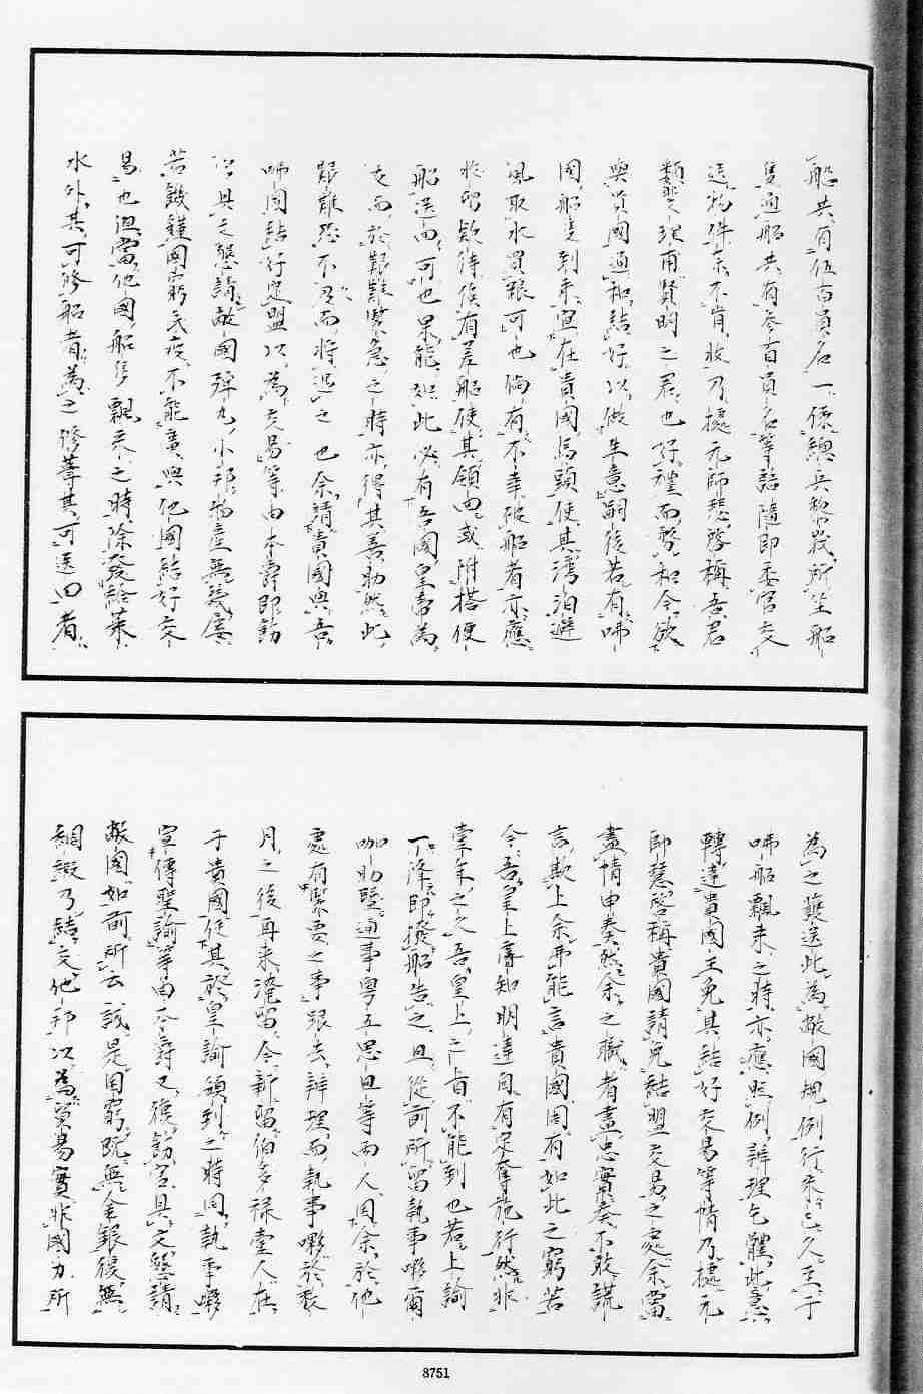 船共有伍百員名一係總兵黎峨所坐船
隻通船共有參百員名等語隨即委官交
送物件亦不肯收乃據元師琶啓稱吾君
類斐理甫賢明之君也好禮而務和今欲
與貴國通和結好以做生意嗣後若有咈
國船隻到來宜在貴國馬頭使其灣泊避
風取水買粮可也倘有不幸破船者亦應
收留欵待俟有差船使其領回或附搭便
船送回可也果能如此必有吾國皇帝為
而於艱難緊急之時亦得其善助然此
艱難忍不過之也余請貴國與吾
咈國結好定盟以為交易等由本爵即飭
官具文懇請敝國彈丸小邦物產無幾屢
若饑饉國窮民疲不能廣與他國結好交
易也但當他國船隻飄來之時除發給菜
水外其可修船者為之修葺其可送回者
為之護送此為敝國規例行來已久至于
咈船飄來之時亦應照例辦理乞體此意
轉達貴國王免其結好交易等情乃據元
師琶啓稱貴國請免結盟交易之處余當
盡情申奏然余之職者盡忠實奏不敢謊
言欺上余弗能言貴國固有如此之窮若
今吾皇上得知明達自有定奪施行然非
壹年之久吾皇上之旨不能到也若上諭
一降即撥船告之且從前所留執事嘞爾
咖助暨通事粵五思旦等兩人因余於他
處有緊要之事跟去辦理而執事嘞於數
月之後再來淹留今新留伯多祿壹人在
于貴國使其於皇諭頒到之時同執事嘞
宣傳聖諭等由本爵又復飭官具文懇請
敝國如前所云該是困窮既無金銀復無
綢緞乃結交他邦以為貿易實非國力所
8751